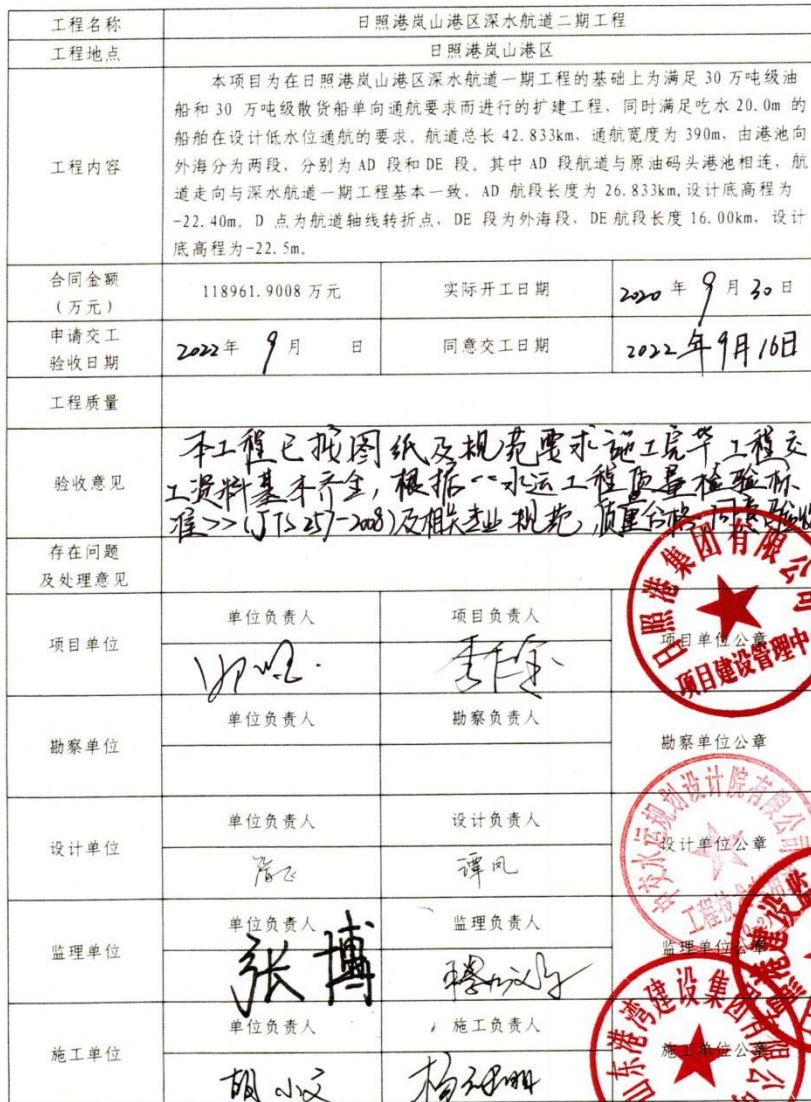 工程名称 日照港岚山港区深水航道二期工程
工程地点 日照港岚山港区
工程内容
本项目为在日照港岚山港区深水航道一期工程的基础上为满足 30 万吨级油
船和 30 万吨级散货船单向通航要求而进行的扩建工程，同时满足吃水 20.0m 的
船舶在设计低水位通航的要求。航道总长 42.833km，通航宽度为 390m，由港池向
外海分为两段，分别为 AD 段和 DE 段。其中 AD 段航道与原油码头港池相连，航
道走向与深水航道一期工程基本一致，AD 航段长度为 26.833km,设计底高程为
-22.40m。D 点为航道轴线转折点，DE 段为外海段，DE 航段长度 16.00km，设计
底高程为-22.5m。
合同金额
（万元）
118961.9008 万元
实际开工日期
2020 年 9 月 30 日
申请交工
验收日期
2022 年 9 月 日
同意交工日期
2022年9月16日
工程质量
验收意见
本工程已按图纸及规范要求施工完毕 工程交
工资料基本齐全，根据《水运工程质量检验标
准>>(JTS 257-2008)及相关专业规范，质量合格，同意验收
存在问题
及处理意见
项目单位
单位负责人 项目负责人
项目单位公章
日照港集团有限公司
项目建设管理中
勘察单位
单位负责人 勘察负责人
勘察单位公章
设计单位
单位负责人 设计负责人
设计单位公章
水运规划设计院有限公司
谭凤
监理单位
单位负责人 监理负责人
监理单位公章
张博
施工单位
单位负责人 施工负责人
施工单位公章
山东港湾建设集团有限公
胡小文